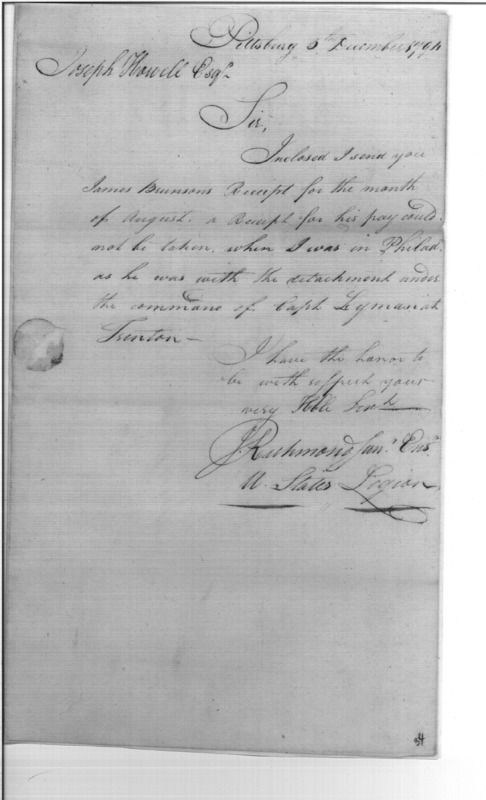 Pittsburg 5th December 1794
Joseph Howell Esqr
Sir,
Inclosed I send you
James Brunsons Receipt for the month
of August. a Receipt for his pay could
not be taken, when I was in Philad.
as he was with the detachment under
the command of Capt Lyman at
Trenton —
I have the honor to
be with respect your
very Hble Servt
J Richmond Junr Ens.
U. States Legion